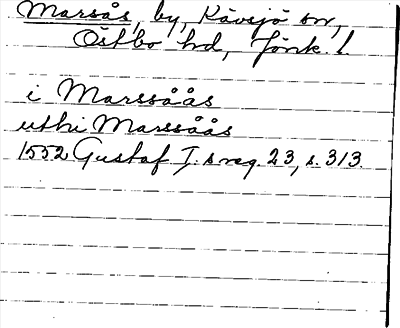 Marsås, by, Kävsjö sn,
Östbo hd, Jönk. l.
i Marssåås
uthi Marssåås
1552 Gustaf I.s reg. 23, s. 313.